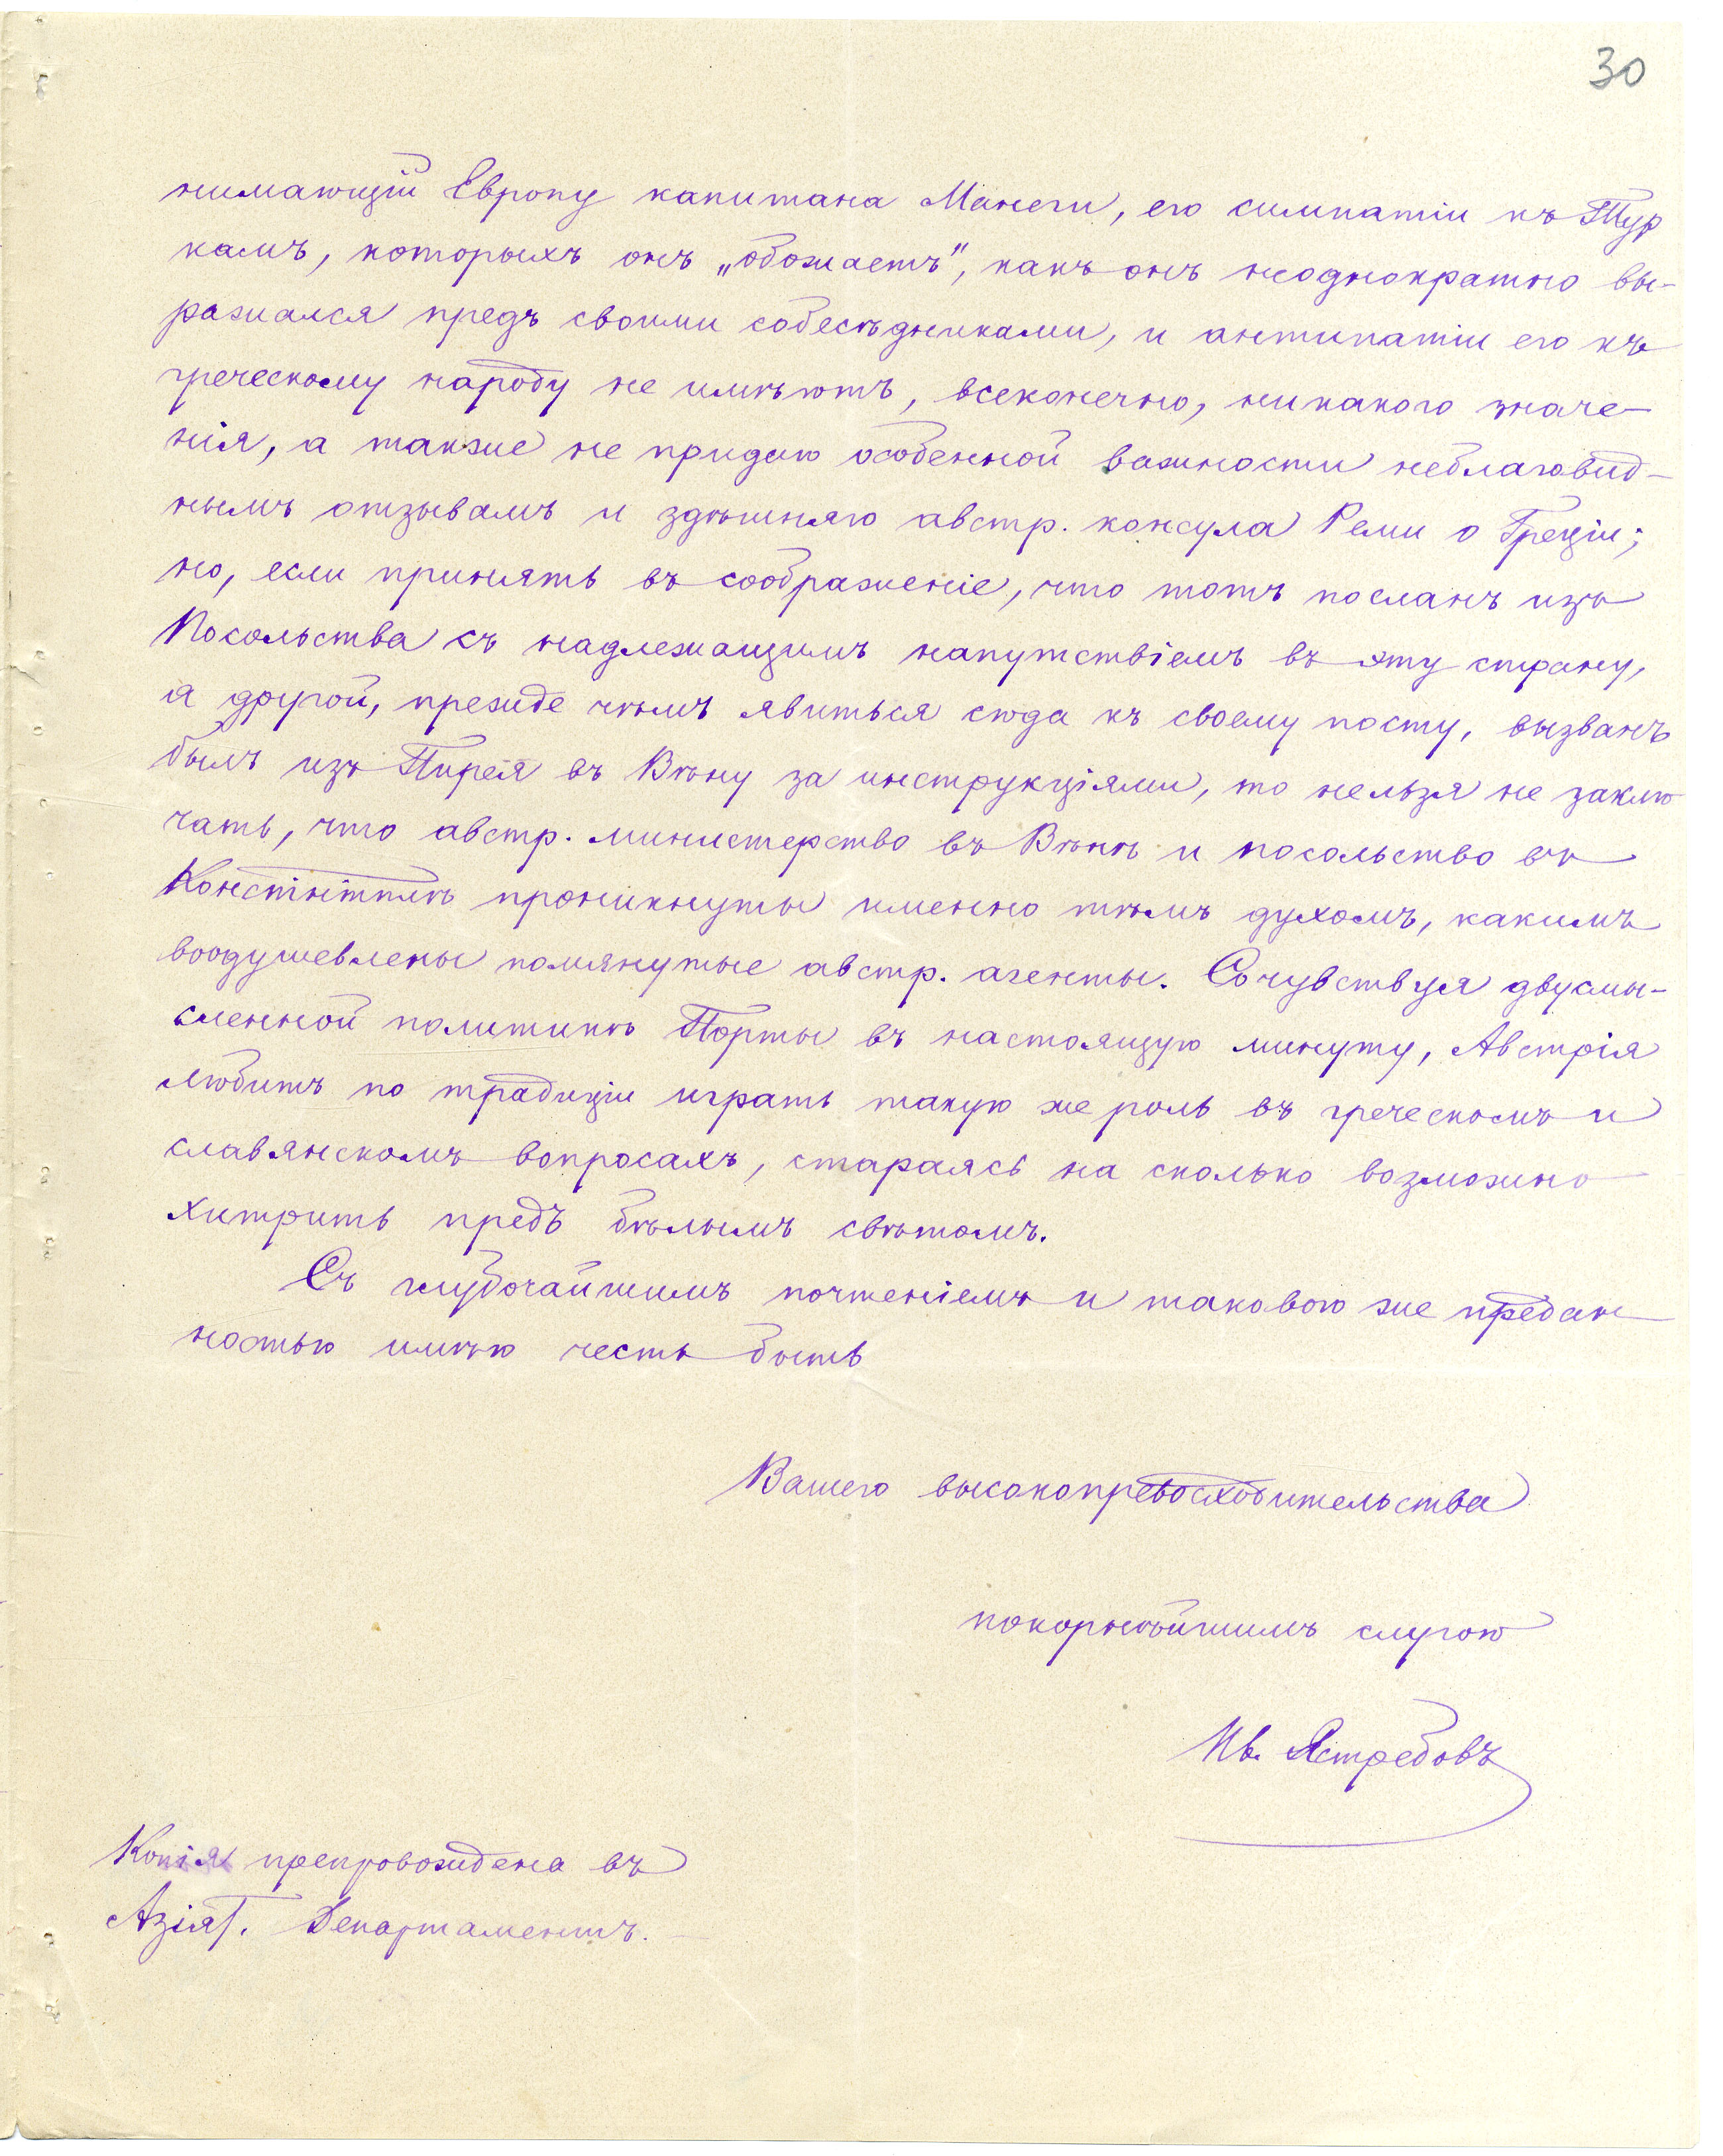 30
нимающій Европу капитана Манеги, его симпатіи къ Тур
камъ, которыхъ онъ „обожаетъ", какъ онъ неоднократно вы-
ражался предъ своими собесѣдниками, и антипатіи его къ
греческому народу не имѣютъ, всеконечно, никакого значе-
нія, а также не придаю особенной важности неблаговид-
нымъ отзывамъ и здѣшняго австр. консула Реми о Греціи;
но, если принять въ соображеніе, что тотъ посланъ изъ
Посольства съ надлежащимъ напутствіемъ въ эту страну,
а другой, прежде чѣмъ явиться сюда къ своему посту, вызванъ
былъ изъ Пирея въ Вѣну за инструкціями, то нельзя не заклю
чать, что австр. министерство въ Вѣнѣ и посольство въ
Констінтплѣ проникнуты именно тѣмъ духомъ, какимъ
воодушевлены помянутые австр. агенты. Сочувствуя двусмы-
сленной политикѣ Порты въ настоящую минуту, Австрія
любитъ по традиціи играть такую же роль въ греческомъ и
славянскомъ вопросахъ, стараясь на сколько возможно
хитрить предъ бѣлымъ свѣтомъ.
Съ глубочайшимъ почтеніемъ и таковою же предан
ностью имѣю честь быть
Вашего высокопревосходительства
покорнѣйшимъ слугою
Ив. Ястребовъ
Копія препровождена въ
Азіят. Департаментъ.